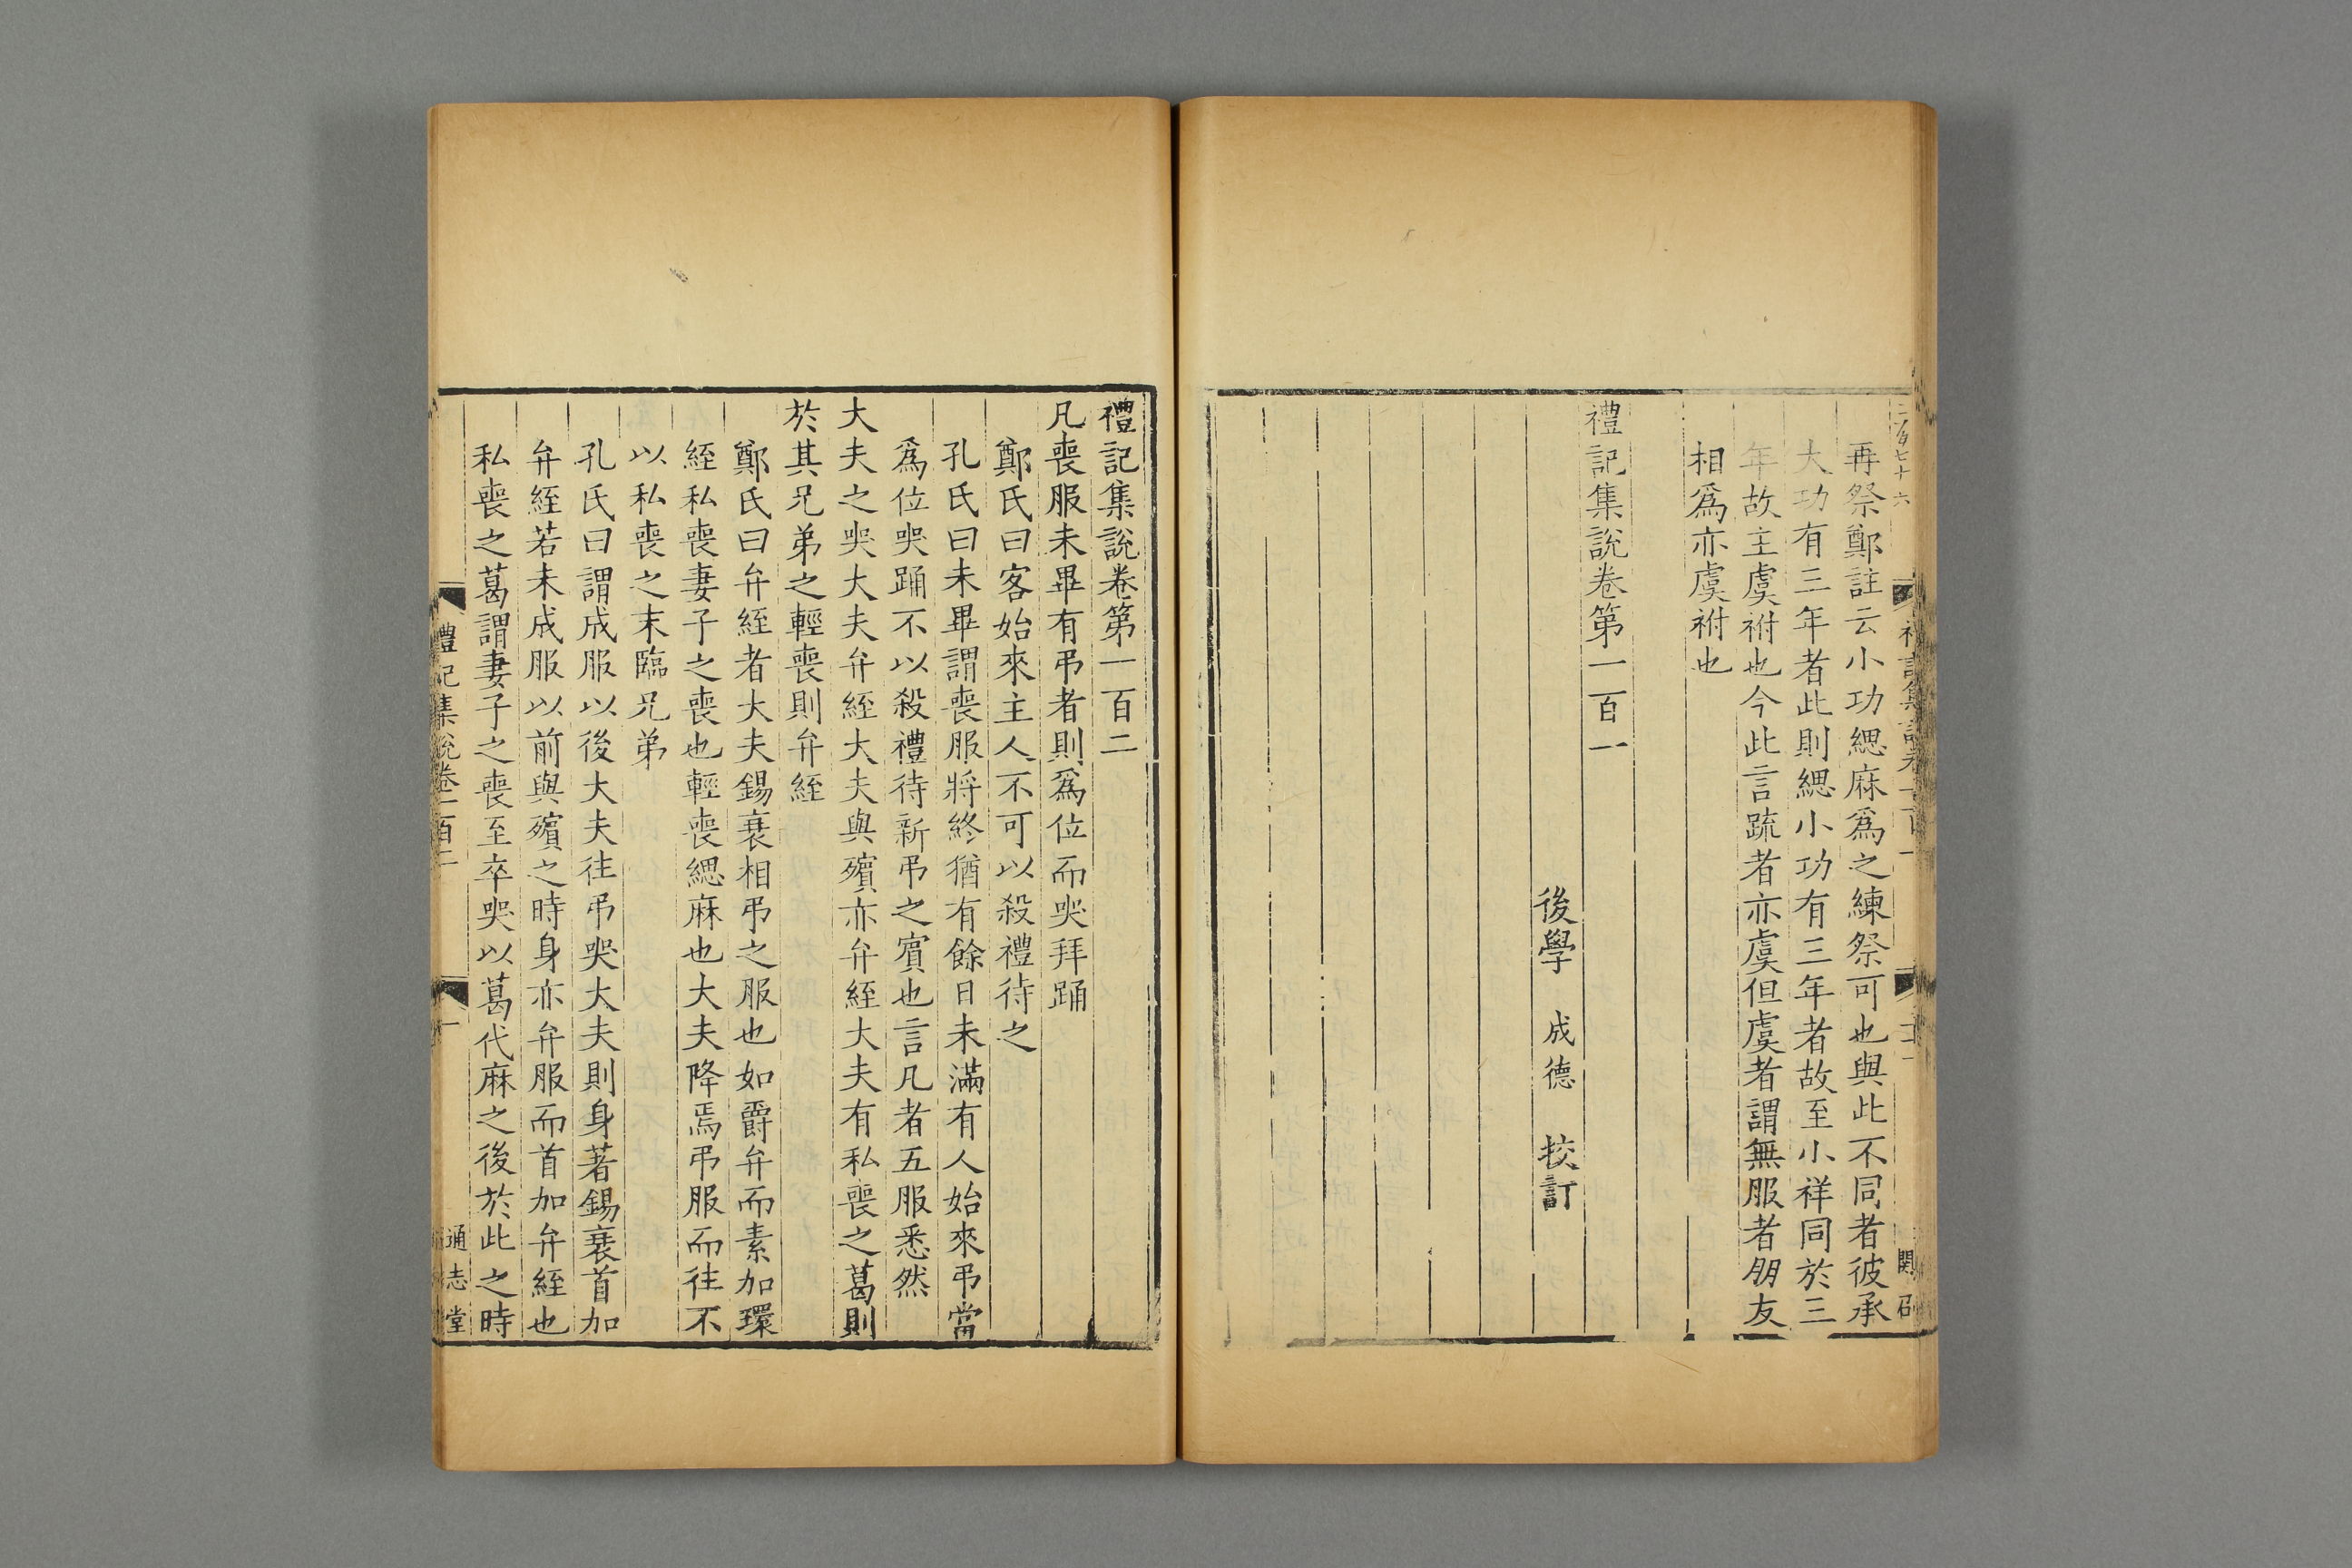 再祭鄭註云小功緦麻爲之練祭可也與此不同者彼承
大功有三年者此則緦小功有三年者故至小祥同於三
年故主虞祔也今此言疏者亦虞但虞者謂無服者朋友
相爲亦虞祔也
禮記集說卷第一百一
後學 成德 挍訂
禮記集說卷第一百二
凡喪服未畢有弔者則爲位而哭拜踊
鄭氏曰客始來主人不可以殺禮待之
孔氏曰未畢謂喪服將終猶有餘日未滿有人始來弔當
爲位哭踊不以殺禮待新弔之賔也言凡者五服悉然
大夫之哭大夫弁絰大夫與殯亦弁絰大夫有私喪之葛則
於其兄弟之輕喪則弁絰
鄭氏曰弁絰者大夫錫衰相弔之服也如爵弁而素加環
絰私喪妻子之喪也輕喪緦麻也大夫降焉弔服而往不
以私喪之末臨兄弟
孔氏曰謂成服以後大夫往弔哭大夫則身著錫衰首加
弁絰若未成服以前與殯之時身亦弁服而首加弁絰也
私喪之葛謂妻子之喪至卒哭以葛代麻之後於此之時
禮記集說卷一百二
一
通志堂